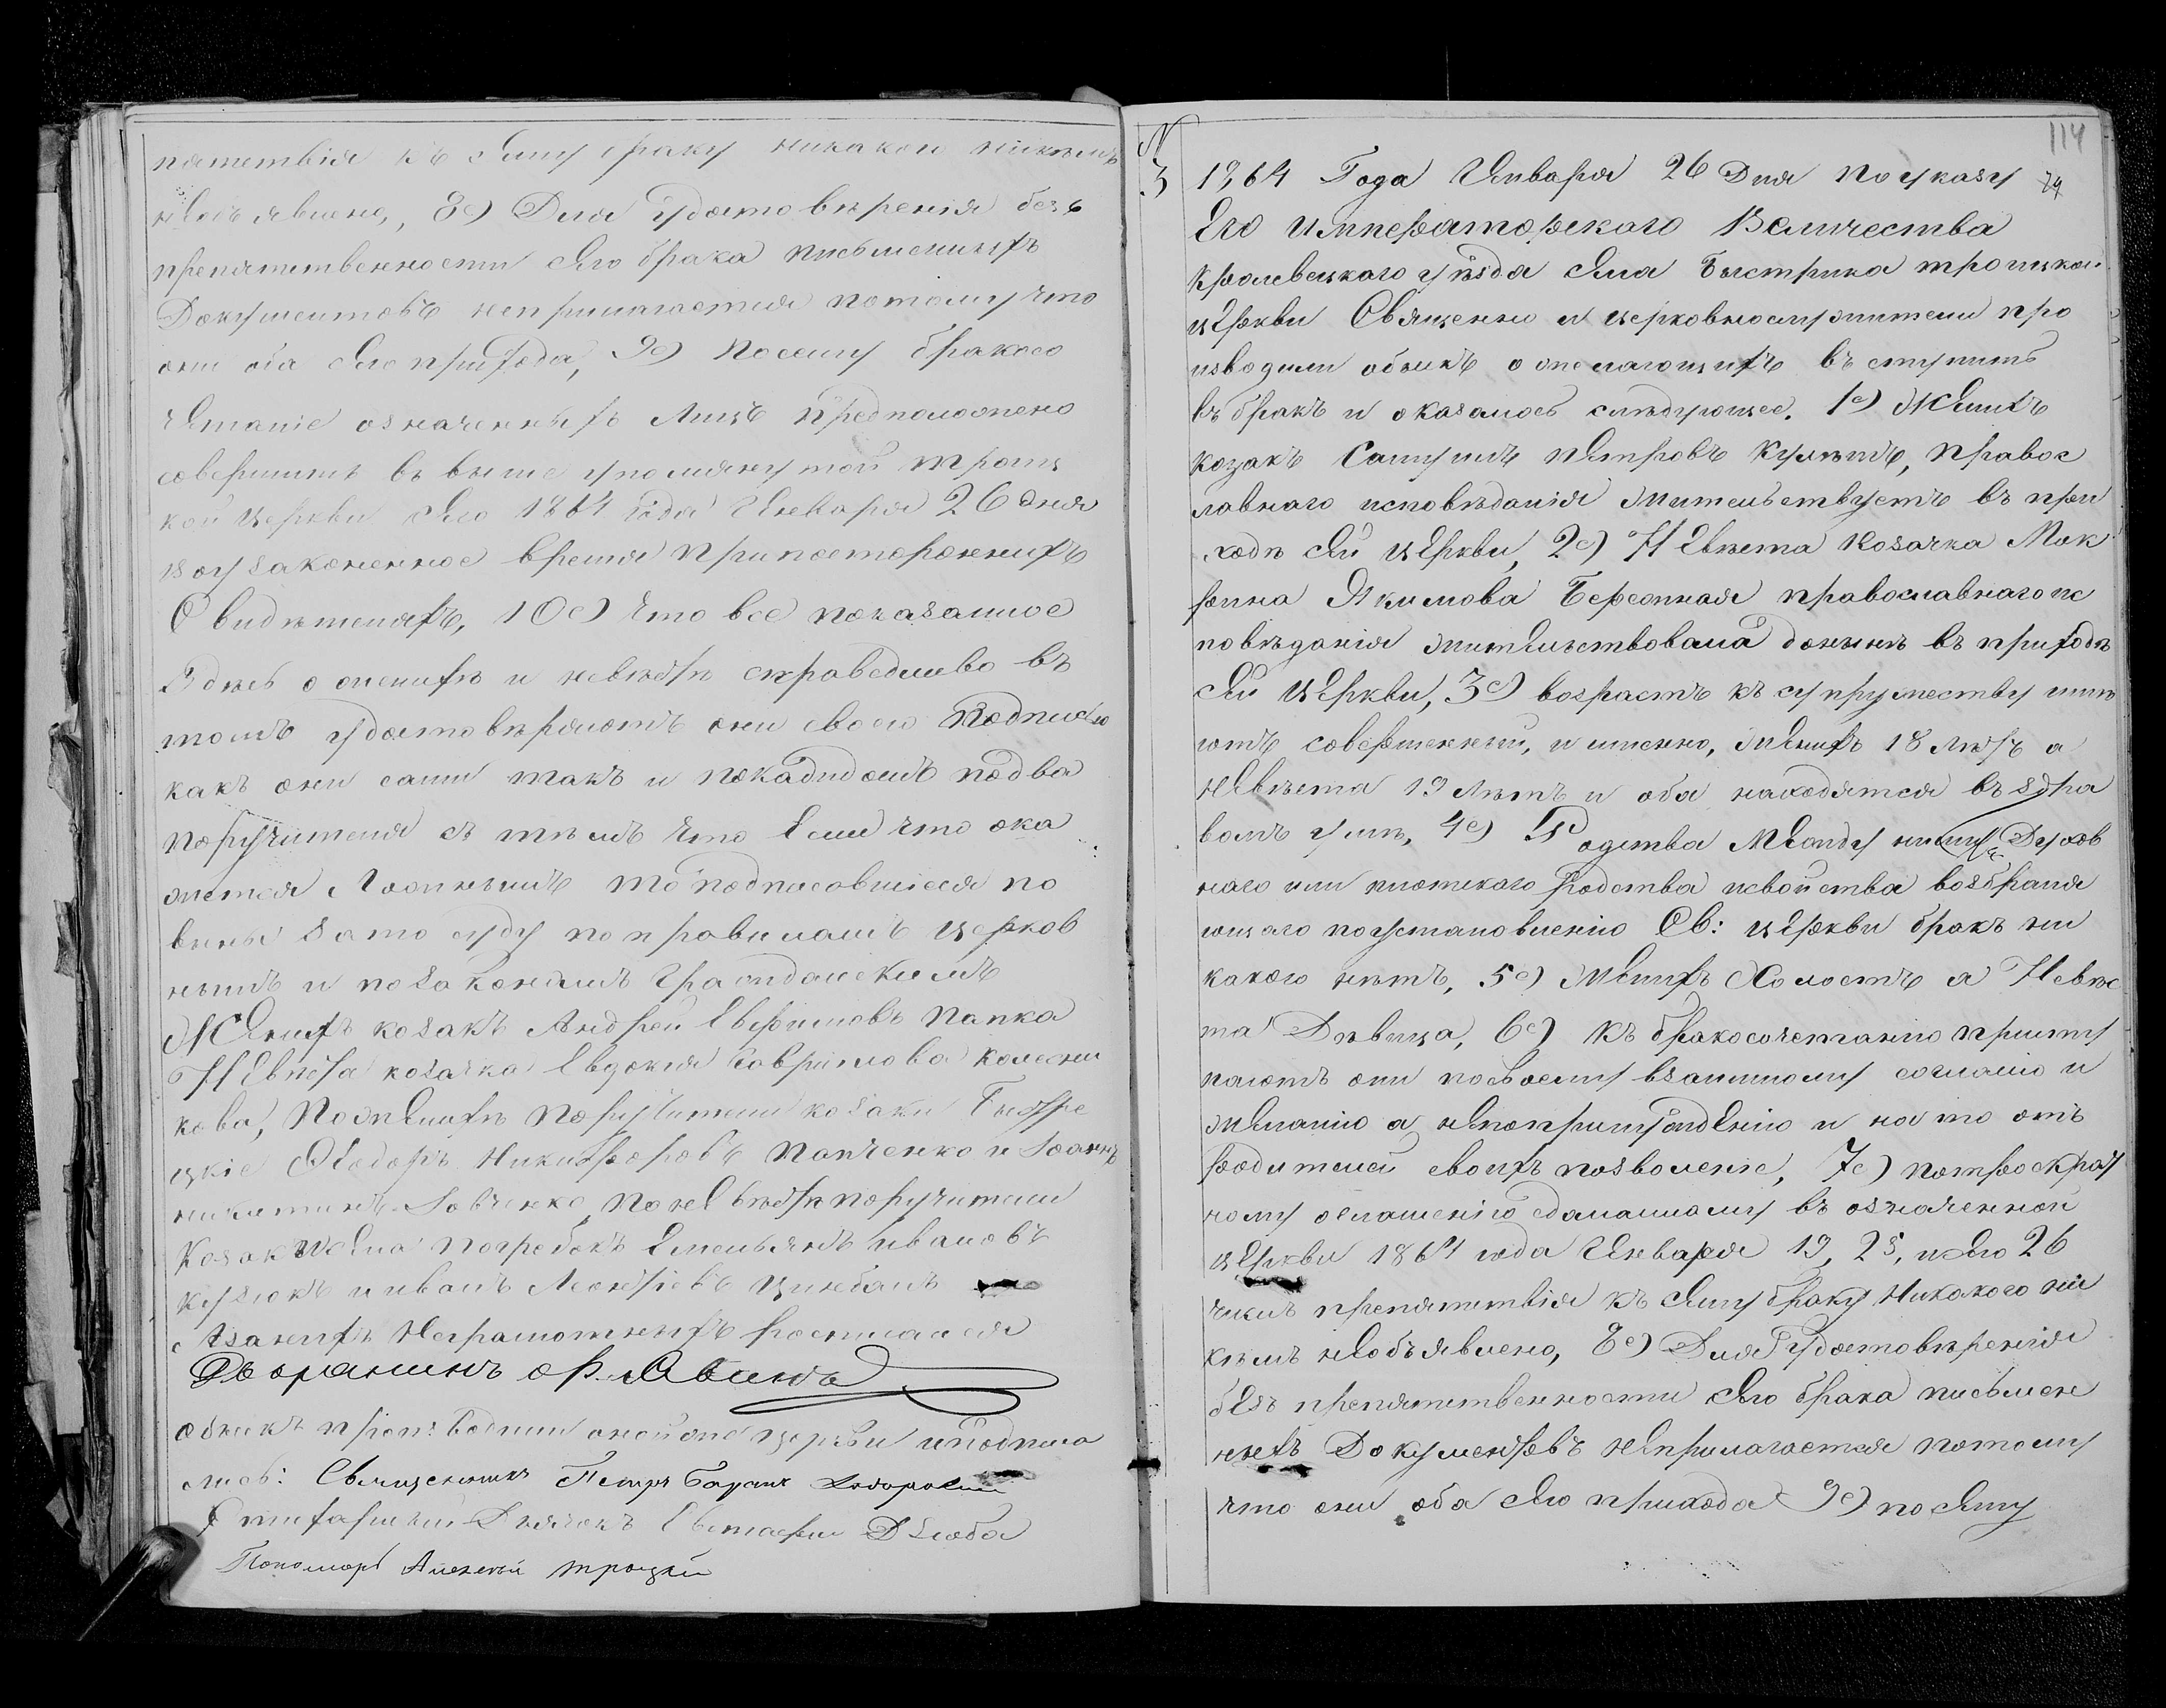 пятствія къ сему браку никакого никѣмъ
необъявлено, 8е) Для Удостовѣренія безъ
препятственности сего брака письменныхъ
Документовъ неприлагается потому что
они оба сего прихода, 9е) посему бракосо
четаніе означенныхъ Лицъ предположено
совершить въ выше упомянутой троиц
кой церкви сего 1864 года Января 26 дня
въ узаконенное время при постороннихъ
Свидѣтеляхъ, 10е) что все показанное
Здѣсь о женихѣ и невѣстѣ справедливо въ
томъ удостовѣряютъ они своею подписью
какъ они сами такъ и покаждомъ подва
поручителя съ тѣмъ что Если что ока
жется Ложнымъ то подписавшіеся по
винны зато суду по правиламъ церков
нымъ и позаконамъ Гражданскимъ
Женихъ козакъ Андрей Евфимовъ Папка
Невѣста козачка Евдокія Гаврилова Колесни
кова, Поженихѣ поручители козаки Быстре
цкіе Ѳеодоръ Никифоровъ Папченко и Іоаннъ
никитинъ Говченко, по невѣстѣ поручители
Козаки села Погребокъ Емельянъ ивановъ
Кузюкъ и иванъ Леонтіевъ Цимбалъ
а заних Неграмотныхъ росписался
Дворянинъ
обыскъ производили оной же церкви иподписа
лись: Священникъ Петръ
Стихарный Дьячокъ Евстафій Дзюба
Пономарь Алексѣй троцкій
114
N
3 1864 Года Января 26 Дня по указу
Его императорскаго Величества
Кролевецкаго уѣзда села Быстрика троицкой
церкви Священно и церковнослужители про
изводили обыскъ о желающихъ въступить
въ бракъ и оказалось слѣдующее. 1е) Женихъ
козакъ Самуилъ петровъ Кулешъ, правос
лавнаго исповѣданія жительствуетъ въ при
ходѣ сей церкви, 2е) Невѣста козачка Мок
рина Якимова Бережная православнаго ис
повѣданія жительствовала донынѣ въ приходѣ
сей церкви, 3е) возрастъ къ супружеству имѣ
ютъ совершенный, и именно, женихъ 18 лѣтъ а
невѣста 19 лѣтъ и оба находятся въ здра
вомъ умѣ, 4е) Родства Между ними Духов
наго или плотского родства исвойства возбраня
ющаго поустановленію Св: церкви бракъ ни
какого нѣтъ, 5е) женихъ Холостъ а Невѣс
та Дѣвица, 6е) къ бракосочетанію присту
паютъ они посвоему взаимному согласію и
желанію а непопринужденію и на то отъ
родителей своихъ позволеніе, 7е) потроекрат
ному оглашенію сдѣланному въ означенной
церкви 1864 года Января 19, 25, и сего 26
чиселъ препятствія къ сему браку Никакого ни
кѣмъ необъявлено, 8е) Для Удостовѣренія
безъ препятственности сего брака письмен
ныхъ Документовъ неприлагается потому
что они оба сего прихода 9е) по сему